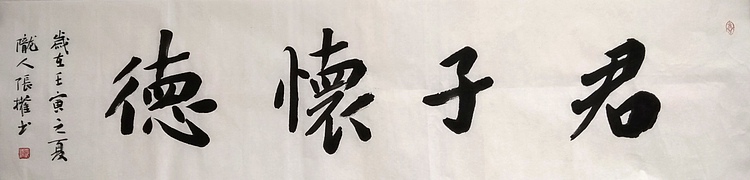 君子懷德
歲在壬寅之夏
隴人張權书